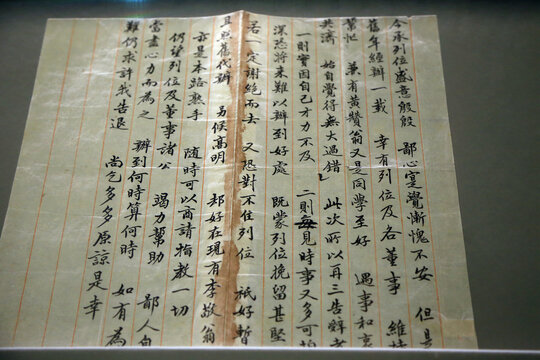 今承列位盛意殷殷 鄙心寔覺慚愧不安 但是
舊年經辦一載 幸有列位及各董事 維持
幫忙 兼有黃贊翁又是同學至好 遇事和衷
共濟 始自覺得無大過錯 此次所以再三告辭者
一則實因自己才力不及 二則每見時事又多可
深恐將來難以辦到好處 既蒙列位挽留甚堅
若一定謝絕而去 又恐對不住列位 祇好暫
且照舊代辦 另候高明 却好在現有李敬翁
亦是本路熟手 隨時可以商請指教一切
仍望列位及董事諸公 竭力幫助 鄙人自
當盡心力而為之 辦到何時算何時 如有為
難仍求許我告退 尚乞多多原諒是幸